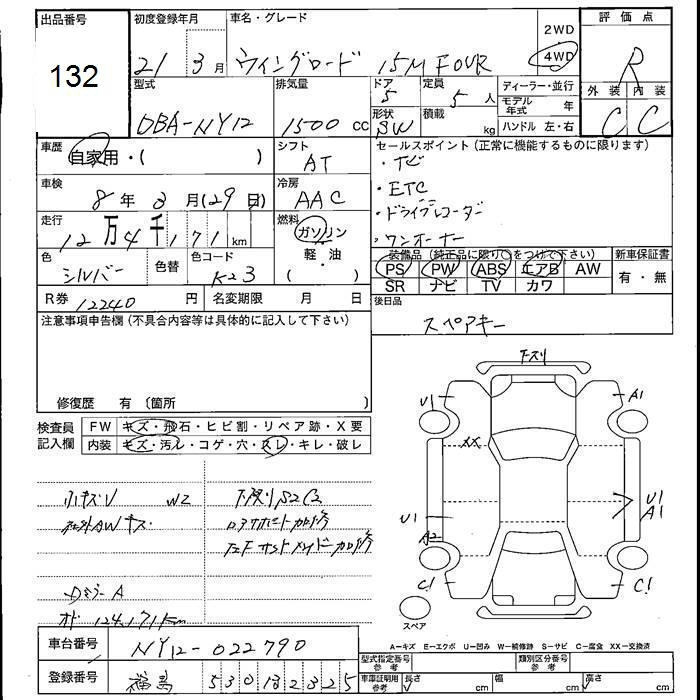 出品番号
132
初度登録年月
21年 3月
車名・グレード
ウイングロード 15M FOUR
2WD
4WD
評価点
R
外装 内装
C C
型式
DBA-NY12
排気量
1500 cc
ドア
5
形状
SW
定員
5 人
積載
kg
ディーラー・並行
モデル年式 年
ハンドル 左・右
車歴
自家用・( )
シフト
AT
セールスポイント(正常に機能するものに限ります)
・ナビ
・ETC
・ドライブレコーダー
・ワンオーナー
車検
8年 3月(29日)
冷房
AAC
走行
12万4千171km
燃料
ガソリン
軽・油
( )
色
シルバー
色替
色コード
K23
装備品(純正品に限り○をつけて下さい)
PS PW ABS エアB AW
SR ナビ TV カワ
新車保証書
有・無
R券 12240円
名変期限 月 日
後日品
スペアキー
注意事項申告欄(不具合内容等は具体的に記入して下さい)
修復歴 有 〔箇所 〕
検査員記入欄
FW キズ・飛石・ヒビ割・リペア跡・X要
内装 キズ・汚レ・コゲ・穴・スレ・キレ・破レ
小キズV W2
社外AWキズ
下廻りS2C2
Dミラー A
オド 124,171Km
下スリ
U1
A1
XX
U1
A2
U1
A1
C1
C1
スペア
A-キズ E-エクボ U-凹み W-補修跡 S-サビ C-腐食 XX-交換済
車台番号
NY12-022790
登録番号
福島 530 ひ 2325
型式指定番号
参考
類別区分番号
参考
車庫証明用
参考
長さ cm
幅 cm
高さ cm